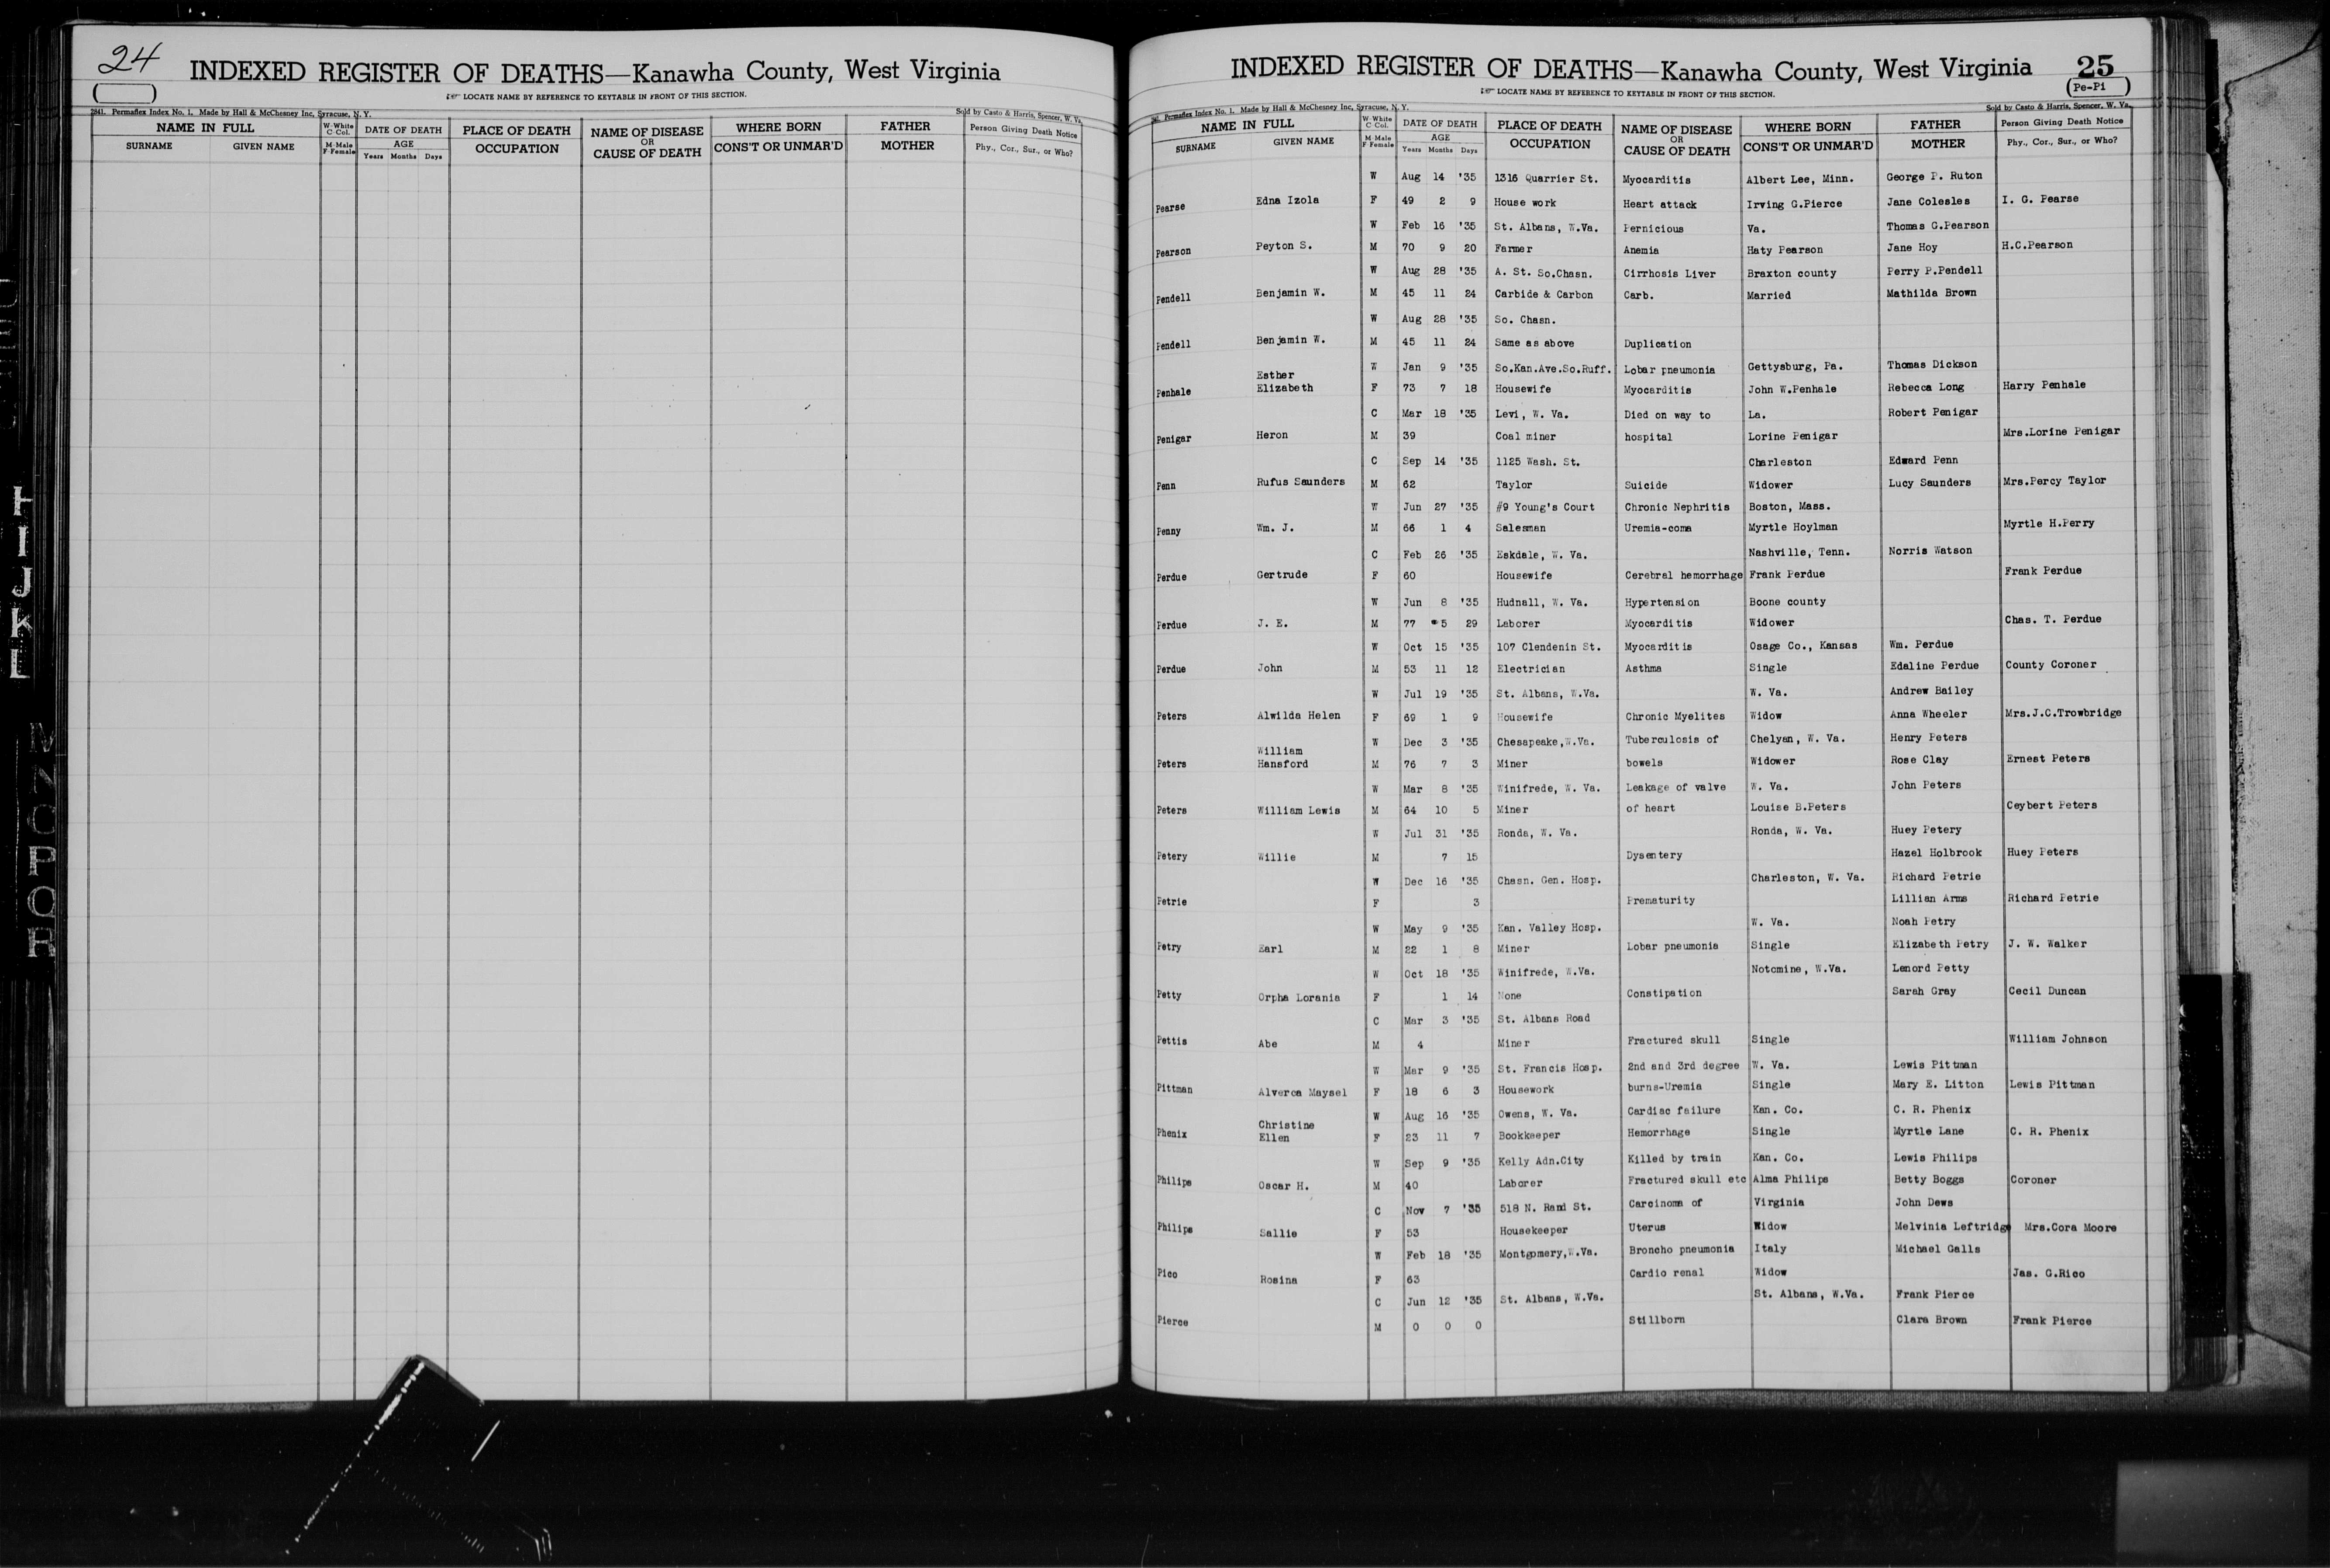 24
INDEXED REGISTER OF DEATHS—Kanawha County, West Virginia
LOCATE NAME BY REFERENCE TO KEYTABLE IN FRONT OF THIS SECTION.
2841. Permaflex Index No. 1. Made by Hall & McChesney Inc, Syracuse, N. Y. Sold by Casto & Harris, Spencer, W. Va.
NAME IN FULL W-White C-Col. DATE OF DEATH PLACE OF DEATH NAME OF DISEASE OR CAUSE OF DEATH WHERE BORN FATHER Person Giving Death Notice
SURNAME GIVEN NAME M-Male F-Female AGE Years Months Days OCCUPATION CONS'T OR UNMAR'D MOTHER Phy., Cor., Sur., or Who?
INDEXED REGISTER OF DEATHS—Kanawha County, West Virginia 25
LOCATE NAME BY REFERENCE TO KEYTABLE IN FRONT OF THIS SECTION. (Pe-Pi)
Permaflex Index No. 1. Made by Hall & McChesney Inc, Syracuse, N. Y. Sold by Casto & Harris, Spencer, W. Va.
NAME IN FULL W-White C-Col. DATE OF DEATH PLACE OF DEATH NAME OF DISEASE OR CAUSE OF DEATH WHERE BORN FATHER Person Giving Death Notice
SURNAME GIVEN NAME M-Male F-Female AGE Years Months Days OCCUPATION CONS'T OR UNMAR'D MOTHER Phy., Cor., Sur., or Who?
W Aug 14 '35 1316 Quarrier St. Myocarditis Albert Lee, Minn. George P. Ruton
Pearse Edna Izola F 49 2 9 House work Heart attack Irving G.Pierce Jane Colesles I. G. Pearse
W Feb 16 '35 St. Albans, W.Va. Pernicious Va. Thomas G.Pearson
Pearson Peyton S. M 70 9 20 Farmer Anemia Haty Pearson Jane Hoy H.C.Pearson
W Aug 28 '35 A. St. So.Chasn. Cirrhosis Liver Braxton county Perry P.Pendell
Pendell Benjamin W. M 45 11 24 Carbide & Carbon Carb. Married Mathilda Brown
W Aug 28 '35 So. Chasn.
Pendell Benjamin W. M 45 11 24 Same as above Duplication
W Jan 9 '35 So.Kan.Ave.So.Ruff. Lobar pneumonia Gettysburg, Pa. Thomas Dickson
Penhale Esther Elizabeth F 73 7 18 Housewife Myocarditis John W.Penhale Rebecca Long Harry Penhale
C Mar 18 '35 Levi, W. Va. Died on way to La. Robert Penigar
Penigar Heron M 39 Coal miner hospital Lorine Penigar Mrs.Lorine Penigar
C Sep 14 '35 1125 Wash. St. Charleston Edward Penn
Penn Rufus Saunders M 62 Taylor Suicide Widower Lucy Saunders Mrs.Percy Taylor
W Jun 27 '35 #9 Young's Court Chronic Nephritis Boston, Mass.
Penny Wm. J. M 66 1 4 Salesman Uremia-coma Myrtle Hoylman Myrtle H.Perry
C Feb 26 '35 Eskdale, W. Va. Nashville, Tenn. Norris Watson
Perdue Gertrude F 60 Housewife Cerebral hemorrhage Frank Perdue Frank Perdue
W Jun 8 '35 Hudnall, W. Va. Hypertension Boone county
Perdue J. E. M 77 5 29 Laborer Myocarditis Widower Chas. T. Perdue
W Oct 15 '35 107 Clendenin St. Myocarditis Osage Co., Kansas Wm. Perdue
Perdue John M 53 11 12 Electrician Asthma Single Edaline Perdue County Coroner
W Jul 19 '35 St. Albans, W.Va. W. Va. Andrew Bailey
Peters Alwilda Helen F 69 1 9 Housewife Chronic Myelites Widow Anna Wheeler Mrs.J.C.Trowbridge
W Dec 3 '35 Chesapeake,W.Va. Tuberculosis of Chelyan, W. Va. Henry Peters
Peters William Hansford M 76 7 3 Miner bowels Widower Rose Clay Ernest Peters
W Mar 8 '35 Winifrede, W. Va. Leakage of valve W. Va. John Peters
Peters William Lewis M 64 10 5 Miner of heart Louise B.Peters Ceybert Peters
W Jul 31 '35 Ronda, W. Va. Ronda, W. Va. Huey Petery
Petery Willie M 7 15 Dysentery Hazel Holbrook Huey Peters
W Dec 16 '35 Chasn. Gen. Hosp. Charleston, W. Va. Richard Petrie
Petrie F 3 Prematurity Lillian Arms Richard Petrie
W May 9 '35 Kan. Valley Hosp. W. Va. Noah Petry
Petry Earl M 22 1 8 Miner Lobar pneumonia Single Elizabeth Petry J. W. Walker
W Oct 18 '35 Winifrede, W.Va. Notomine, W.Va. Lenord Petty
Petty Orpha Lorania F 1 14 None Constipation Sarah Gray Cecil Duncan
C Mar 3 '35 St. Albans Road
Pettis Abe M 4 Miner Fractured skull Single William Johnson
W Mar 9 '35 St. Francis Hosp. 2nd and 3rd degree W. Va. Lewis Pittman
Pittman Alverca Maysel F 18 6 3 Housework burns-Uremia Single Mary E. Litton Lewis Pittman
W Aug 16 '35 Owens, W. Va. Cardiac failure Kan. Co. C. R. Phenix
Phenix Christine Ellen F 23 11 7 Bookkeeper Hemorrhage Single Myrtle Lane C. R. Phenix
W Sep 9 '35 Kelly Adn.City Killed by train Kan. Co. Lewis Philips
Philips Oscar H. M 40 Laborer Fractured skull etc Alma Philips Betty Boggs Coroner
C Nov 7 '35 518 N. Rand St. Carcinoma of Virginia John Dews
Philips Sallie F 53 Housekeeper Uterus Widow Melvinia Leftridge Mrs.Cora Moore
W Feb 18 '35 Montgomery,W.Va. Broncho pneumonia Italy Michael Galls
Pico Rosina F 63 Cardio renal Widow Jas. G.Rico
C Jun 12 '35 St. Albans, W.Va. St. Albans, W.Va. Frank Pierce
Pierce M 0 0 0 Stillborn Clara Brown Frank Pierce
I
J
K
L
M
N
O
P
Q
R